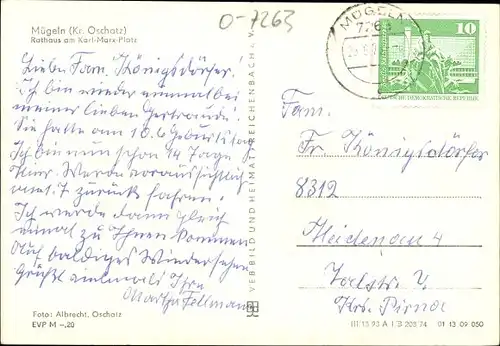 O-7263
Mügeln (Kr. Oschatz)
Rathaus am Karl-Marx-Platz
Liebe Fam. Königsdörfer.
Ich bin wieder einmal bei
meiner lieben Gertraude.
Sie hatte am 10.6 Geburtstag
Ich bin nun schon 14 Tage
hier. Werde voraussichtlich
am 1.7 zurück fahren.
Ich werde dann gleich
einmal zu Ihnen kommen
Auf baldiges Wiedersehen
Grüßt einmals Ihre
Martha Fellmann
Foto: Albrecht, Oschatz
EVP M –,20
VEB BILD UND HEIMAT REICHENBACH i. V.
MÜGELN
726
10
DEUTSCHE DEMOKRATISCHE REPUBLIK
Fam.
Fr Königsdörfer
8312
Heidenau 4
Krs. Pirna
III 13 93 A 1 B 208 74 01 13 09 050